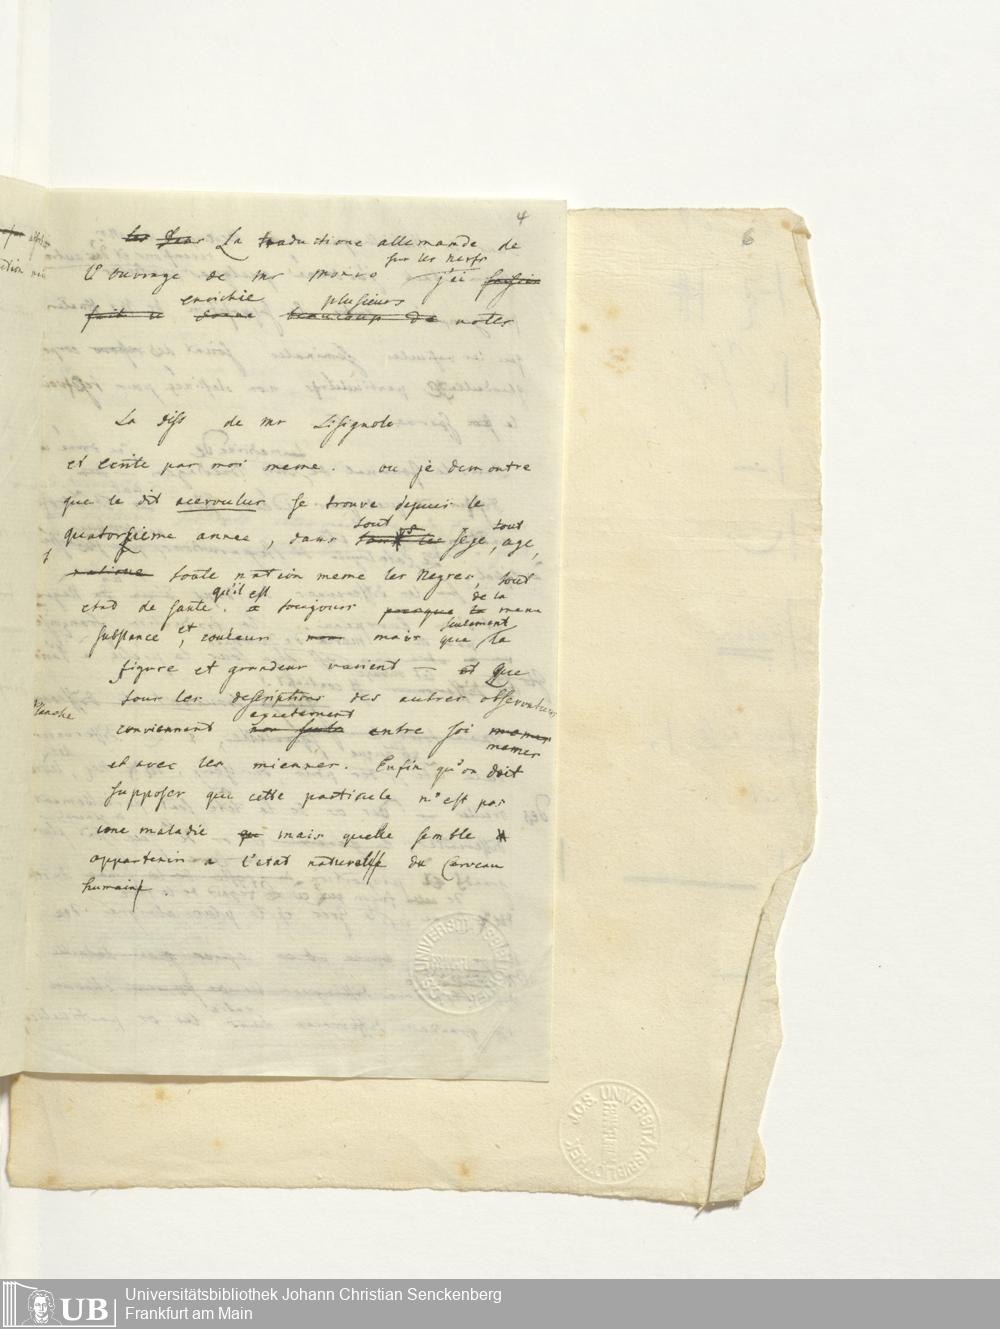 4
6
La traductione allemande de
sur les nerfs
l'ouvrage de Mr Monro j'ai
enrichie plusieurs
fait beaucoup de notes
La diss de Mr Lisignolo
et ecrite par moi meme. ou je demontre
que le dit acervulus se trouve depuis le
quatorsieme annee, dans tout sexe, tout age,
toute nation meme les Negres, tout
etad de sante. qu'il est toujours de la meme
substance et, couleur mais que seulement la
figure et grandeur varient — et Que
tous les descriptions des autres observateurs
conviennent exactement entre soi memes
et avec les miennes. Enfin qu'on doit
supposer que cette particule n'est pas
une maladie mais quelle semble
appartenir a l'etat naturelle du Cerveau
humain.
J.C.S. UNIVERSITÄTSBIBLIOTHEK
J.C.S. UNIVERSITÄTSBIBLIOTHEK
UB
Universitätsbibliothek Johann Christian Senckenberg
Frankfurt am Main